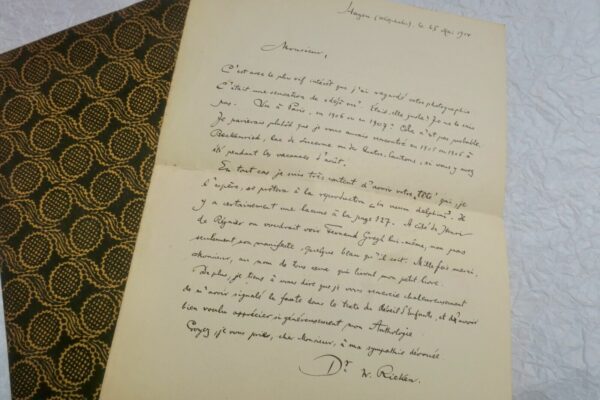 Hagen (Westphalie) le 25 Mai 19
Monsieur,
C'est avec le plus vif intérêt que j'ai regardé votre photographie
C'était une sensation de "déjà vu". Etait-elle juste? Je ne le sais
pas. Vu à Paris, en 1906 ou en 1907? Cela n'est pas probable.
Je parierais plutôt que je vous aurais rencontré en 1905 ou 1906 à
Beckenried, Lac de Lucerne ou des Quatre-Cantons, si vous y avez
été pendant les vacances d'août.
En tout cas je suis très content d'avoir votre "tête" qui, je
l'espère, se prêtera à la reproduction "in usum delphini". Il
y a certainement une lacune à la page 127. A côté de Henri
de Régnier on voudrait voir Fernand Gregh lui-même, non pas
seulement son manifeste, quelque beau qu'il soit. Mille fois merci,
Monsieur, au nom de tous ceux qui liront mon petit livre.
De plus, je tiens à vous dire que je vous remercie chaleureusement
de m'avoir signalé la faute dans le texte du Récit d'Enfants, et d'avoir
bien voulu apprécier si généreusement mon Anthologie
Croyez, je vous prie, cher Monsieur, à ma sympathie dévouée
Dr W. Ricken.